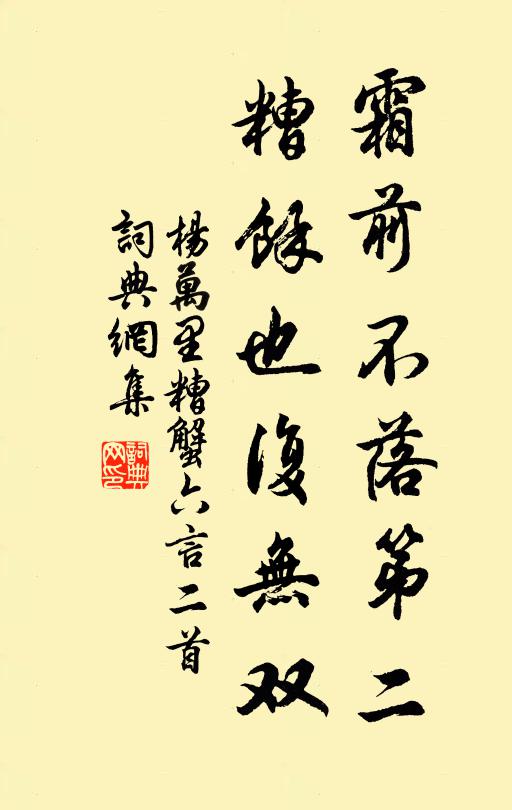 霜前不落第二
糟餘也復無双
楊萬里糟蟹六言二首
詞典網集
詞典網印